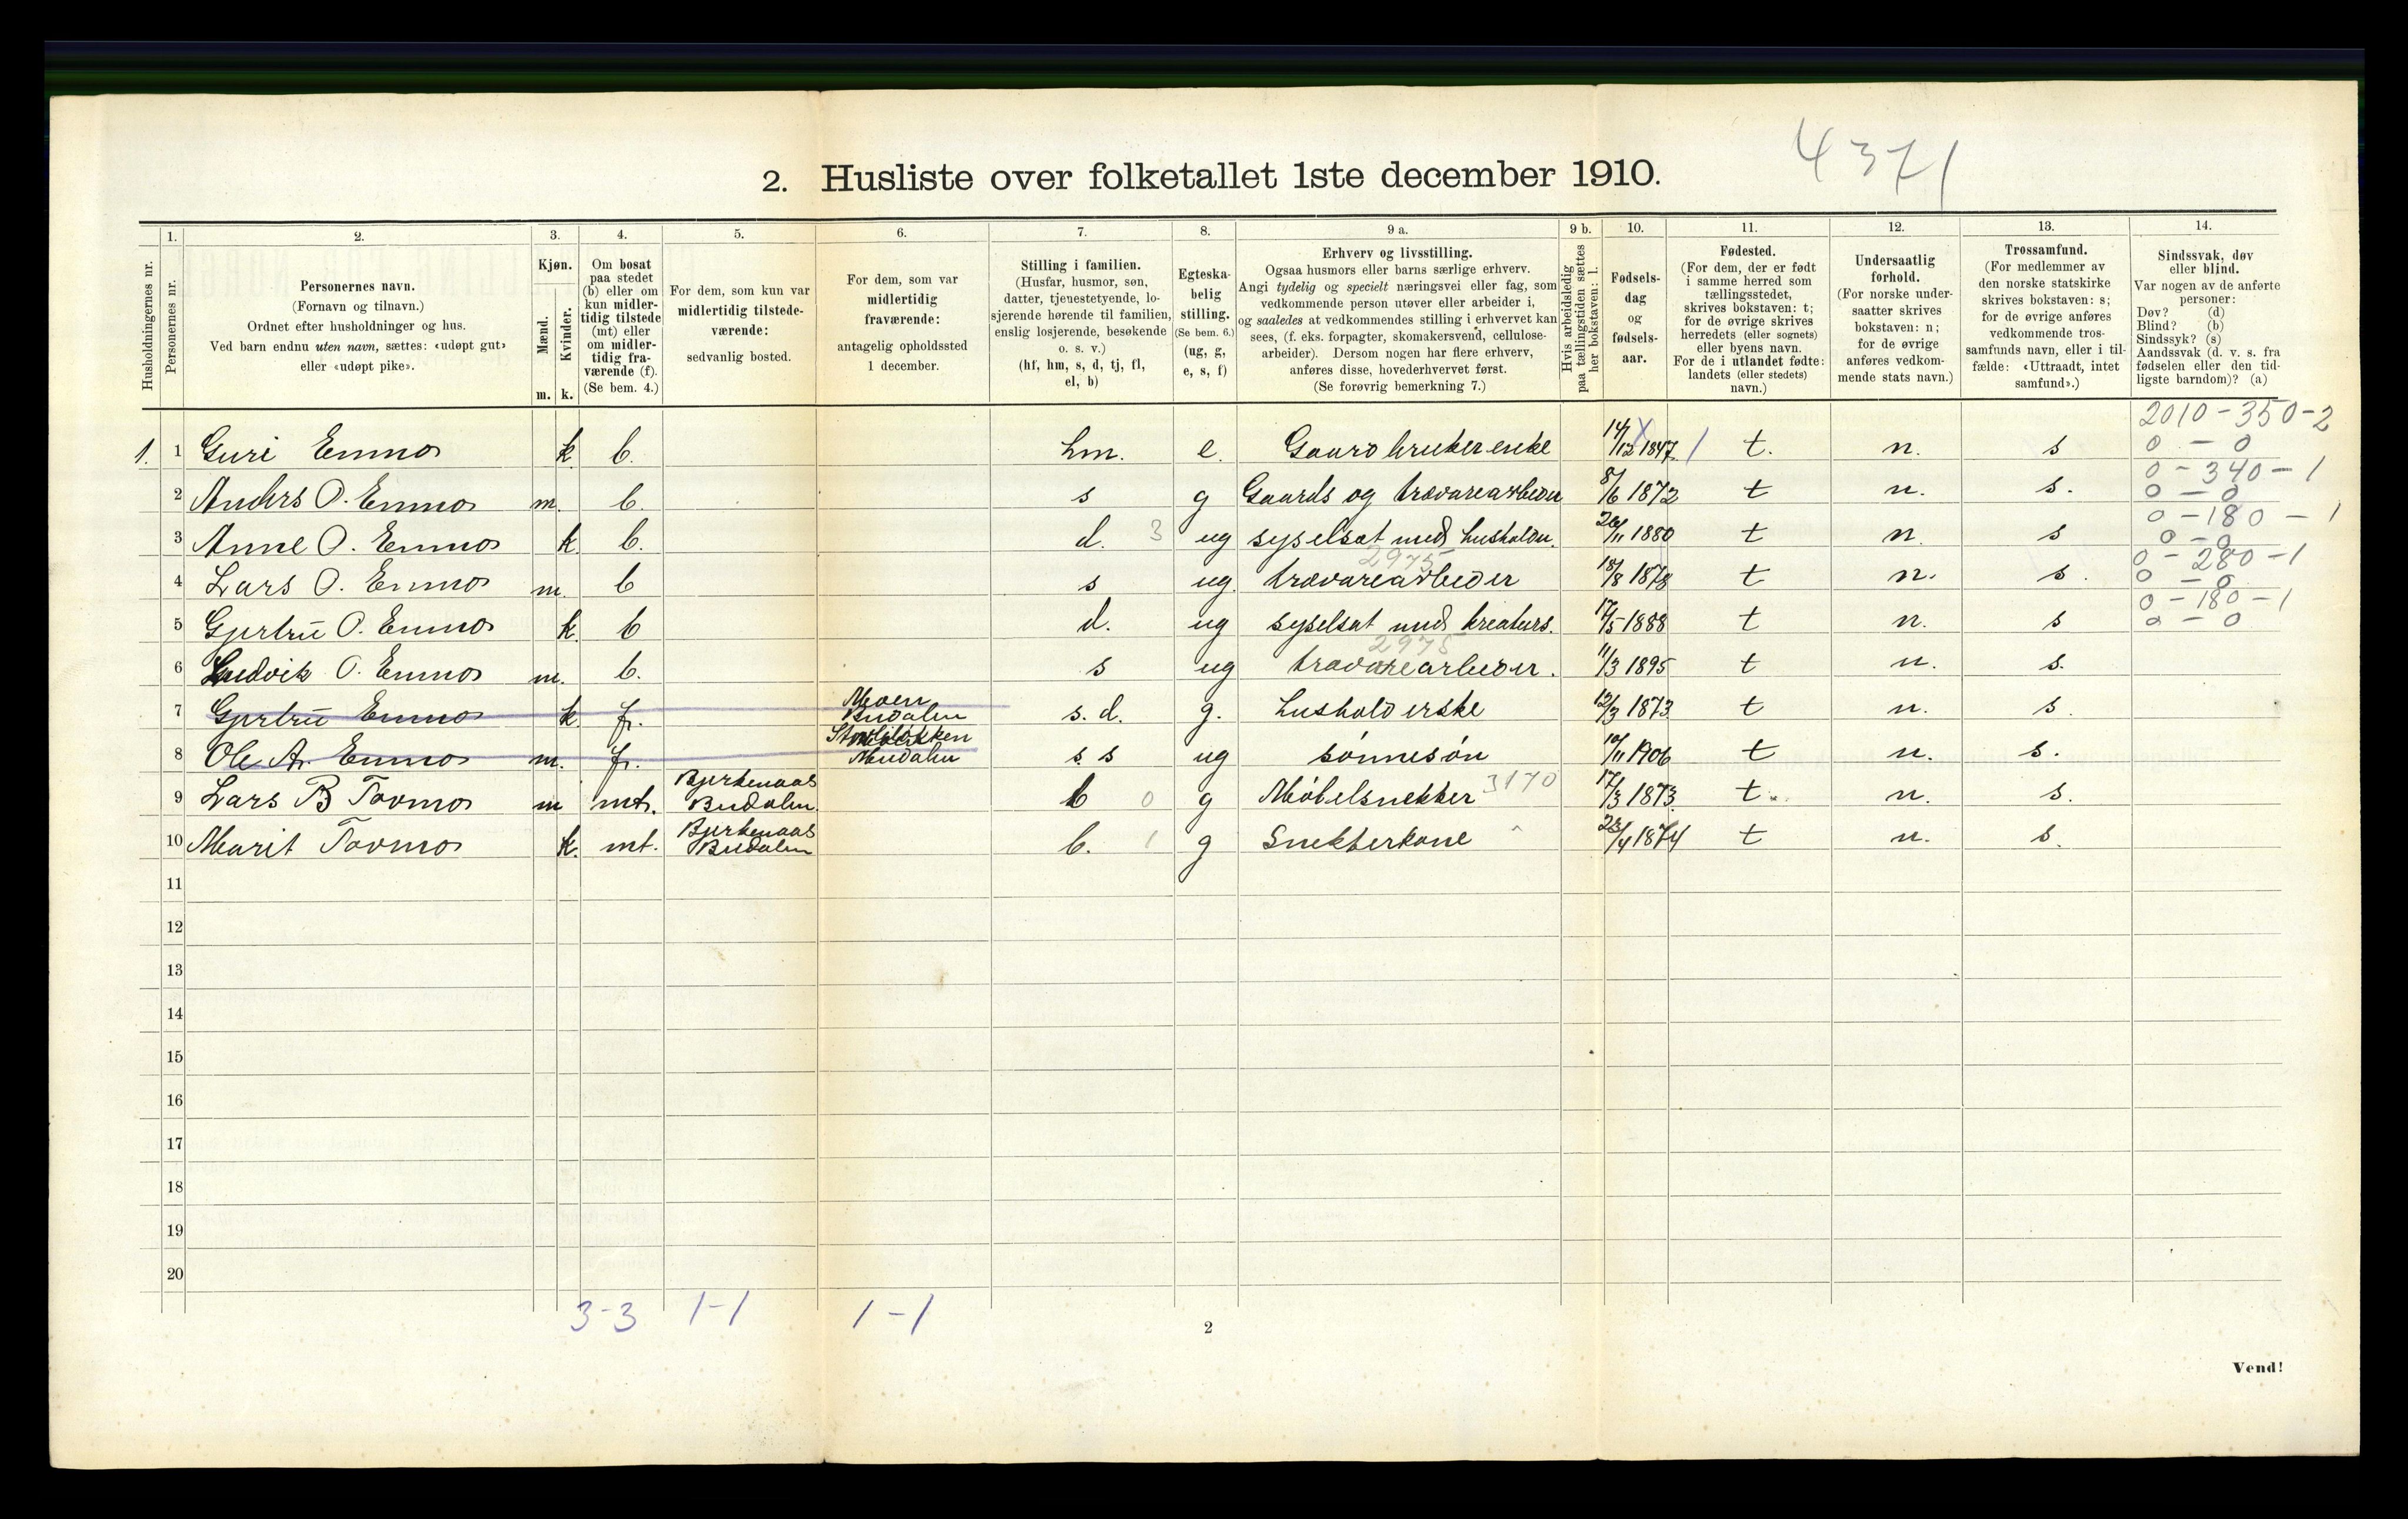 4371
2. Husliste over folketallet 1ste december 1910.
Husholdningernes nr.
1.
Personernes nr.
2.
Personernes navn.
(Fornavn og tilnavn.)
Ordnet efter husholdninger og hus.
Ved barn endnu uten navn, sættes: «udøpt gut»
eller «udøpt pike».
3.
Kjøn.
Mænd.
Kvinder.
m. k.
4.
Om bosat
paa stedet
(b) eller om
kun midler-
tidig tilstede
(mt) eller
om midler-
tidig fra-
værende (f).
(Se bem. 4.)
5.
For dem, som kun var
midlertidig tilstede-
værende:
sedvanlig bosted.
6.
For dem, som var
midlertidig
fraværende:
antagelig opholdssted
1 december.
7.
Stilling i familien.
(Husfar, husmor, søn,
datter, tjenestetyende, lo-
sjerende hørende til familien,
enslig losjerende, besøkende
o. s. v.)
(hf, hm, s, d, tj, fl,
el, b)
8.
Egteska-
belig
stilling.
(Se bem. 6.)
(ug, g,
e, s, f)
9 a.
Erhverv og livsstilling.
Ogsaa husmors eller barns særlige erhverv.
Angi tydelig og specielt næringsvei eller fag, som
vedkommende person utøver eller arbeider i,
og saaledes at vedkommendes stilling i erhvervet kan
sees, (f. eks. forpagter, skomakersvend, cellulose-
arbeider). Dersom nogen har flere erhverv,
anføres disse, hovederhvervet først.
(Se forøvrig bemerkning 7.)
9 b.
Hvis arbeidsledig
paa tællingstiden sættes
her bokstaven: l.
10.
Fødsels-
dag
og
fødsels-
aar.
11.
Fødested.
(For dem, der er født
i samme herred som
tællingsstedet,
skrives bokstaven: t;
for de øvrige skrives
herredets (eller sognets)
eller byens navn.
For de i utlandet fødte:
landets (eller stedets)
navn.)
12.
Undersaatlig
forhold.
(For norske under-
saatter skrives
bokstaven: n;
for de øvrige
anføres vedkom-
mende stats navn.)
13.
Trossamfund.
(For medlemmer av
den norske statskirke
skrives bokstaven: s;
for de øvrige anføres
vedkommende tros-
samfunds navn, eller i til-
fælde: «Uttraadt, intet
samfund».)
14.
Sindssvak, døv
eller blind.
Var nogen av de anførte
personer:
Døv? (d)
Blind? (b)
Sindssyk? (s)
Aandssvak (d. v. s. fra
fødselen eller den tid-
ligste barndom)? (a)
2010-350-2
1. 1 Guri Enmo k b. hm. e. Gaardbruker enke 14/12 1847 t. n. s 0 - 0
0-340-1
2 Anders O. Enmo m. b. s g Gaards og trævarearbeider 8/6 1872 t n. s. 0 - 0
0-180-1
3 Anne O. Enmo k b. d. 3 ug syselsat med husholdn. 26/11 1880 t n. s 0-0
2975 0-280-1
4 Lars O. Enmo m. b s ug. trævarearbeider 18/8 1878 t n. s. 0 - 0
0-180-1
5 Gjertru O. Enmo k. b d. ug syselsat med kreaturs. 17/5 1888 t n. s 0 - 0
2975
6 Ludvik O. Enmo m. b. s ug trævarearbeider. 11/3 1895 t n. s.
7 Gjertru Enmo k fr. Moen Budalen s. d. g. husholderske 12/3 1873 t n. s.
8 Ole A. Enmo m. fr. Budalen s. s ug sønnesøn 10/11 1906 t n. s.
9 Lars B Tovmo m mt. Bjerkenaas Budalen. b 0 g Møbelsnekker 3170 17/3 1873 t. n. s.
10 Marit Tovmo k. mt. Bjerkenaas Budalen b. 1 g Snekkerkone 23/4 1874 t n. s.
11
12
13
14
15
16
17
18
19
20
3-3 1-1 1-1
2
Vend!